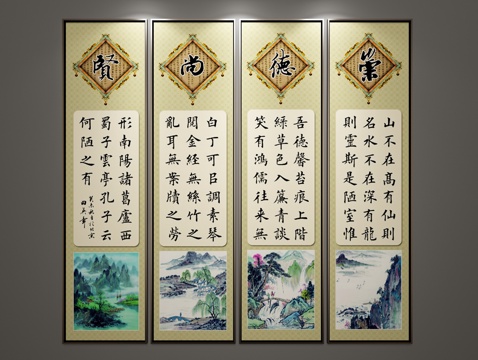 崇
山不在高有仙則
名水不在深有龍
則靈斯是陋室惟
德
吾德馨苔痕上階
綠草色入簾青談
笑有鴻儒往來無
尚
白丁可㠯調素琴
閱金經無絲竹之
亂耳無案牘之勞
賢
形南陽諸葛廬西
蜀子雲亭孔子云
何陋之有